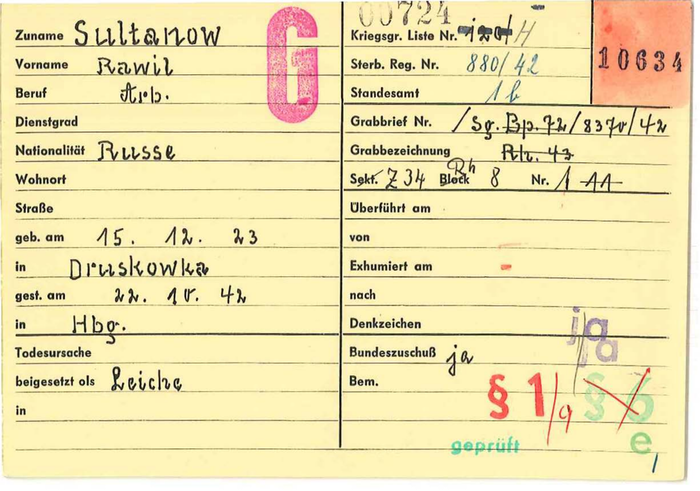 Zuname Sultanow
Vorname Rawil
Beruf Arb.
Dienstgrad
Nationalität Russe
Wohnort
Straße
geb. am 15. 12. 23
in Druskowka
gest. am 22. 10. 42
in Hbg.
Todesursache
beigesetzt als Leiche
in
G
00724
Kriegsgr. Liste Nr. /H
10634
Sterb. Reg. Nr. 880/42
Standesamt 1b
Grabbrief Nr. /Sg. Bp. 72/8370/42
Grabbezeichnung Rh. 43
Sekt. Z 34 Block Rh 8 Nr. 1 11
Überführt am
von
Exhumiert am -
nach
Denkzeichen ja
ja
Bundeszuschuß ja
Bem. § 1/9 § 6
geprüft e